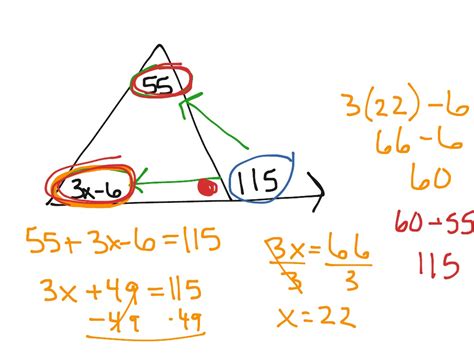 55
3x-6
115
55+3x-6=115
3x+49=115
-49 -49
3x=66
3 3
x=22
3(22)-6
66-6
60
60+55
115